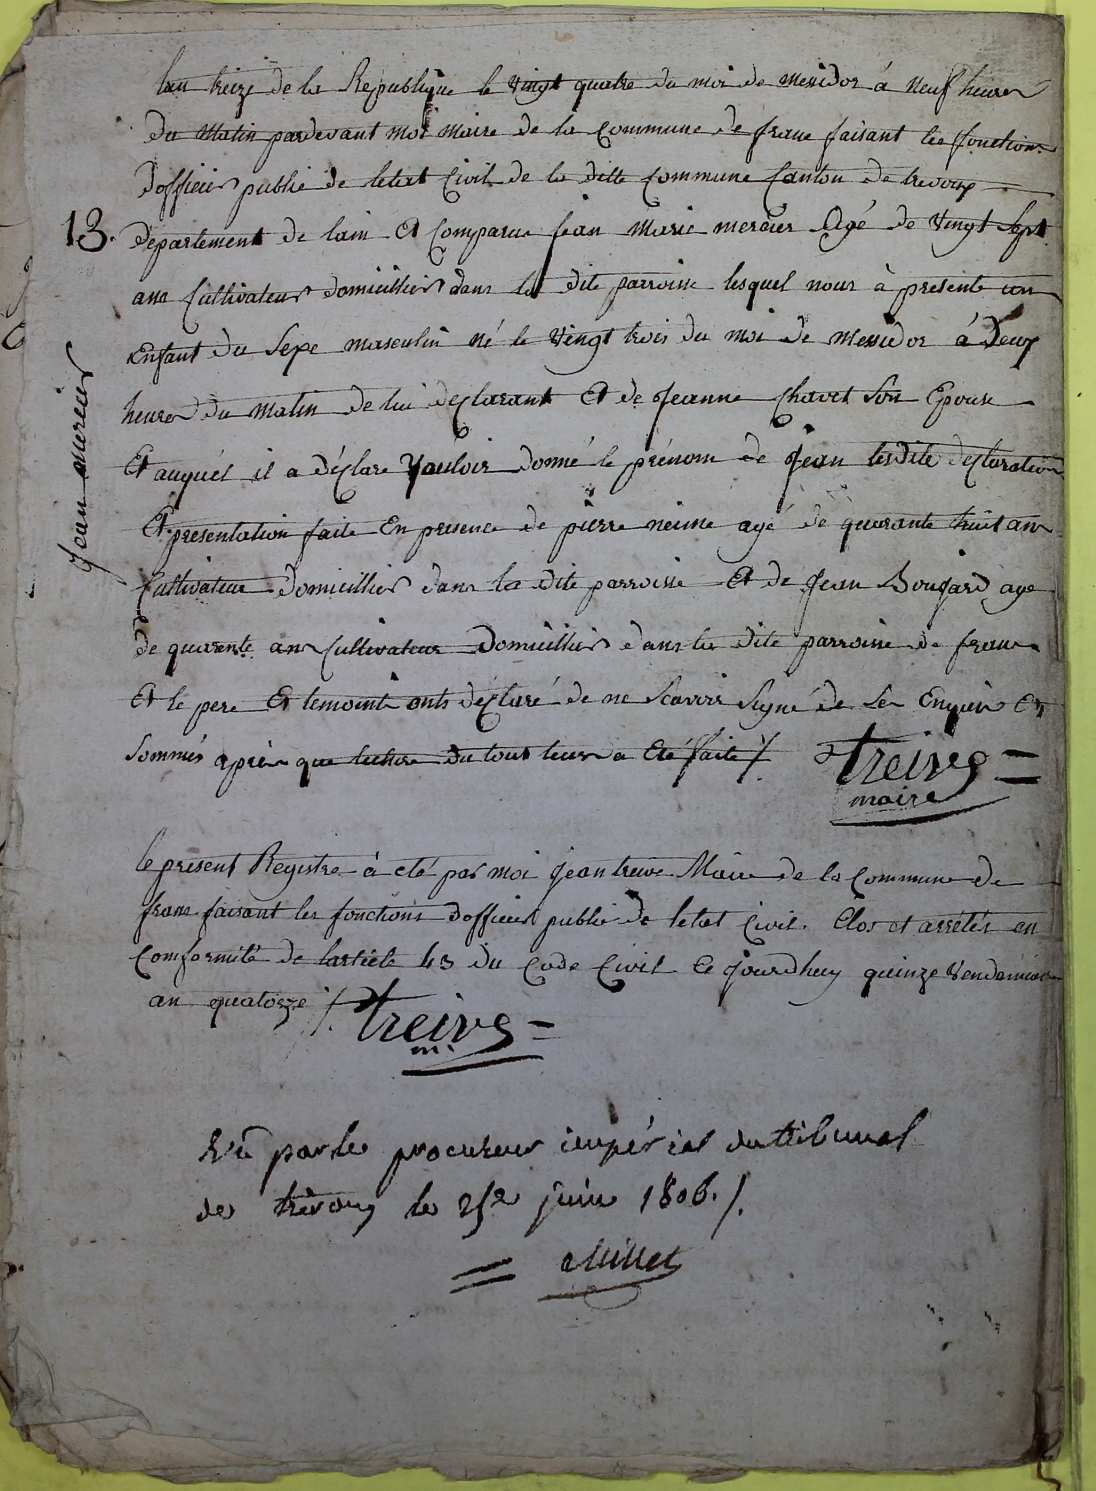 lan treize de la Republique le vingt quatre du moi de messidor á neuf heures
du matin pardevant moi maire de la commune de frans faisant les fonctions
dofficier public de letat Civil de la ditte commune Canton de trevoux
13. departement de lain Et Comparue jean Marie mercier Agé de Vingt Sept
ans Cultivateur domicillier dans la dite parroisse lesquel nous à présenté un
Enfant du Sexe masculin né le Vingt trois du moi de Messidor á deux
heures du matin de lui declarant Et de jeanne Chavet Son Epouse
Et auquel il a déclaré Vouloir donné le prénom de jean lesdite declaration
Et presentation faite En presence de pierre neime agé de quarante huit ans
Cultivateur domicillier dans la dite parroisse Et de jean Boujard age
de quarente ans Cultivateur Domicillier dans la dite parroisse de frans
Et le pere Et temoint onts déclaré de ne Scavoir Signé de Ce Enquis Et
Sommés aprèr que lecture du tout leurs a Eté faite ./.
Jean mercier
treive
maire
le present Registre à eté par moi jean treive Maire de la commune de
frans faisant les fonctions dofficier public de letat Civil. Clos et arrétés en
conformité de larticle 43 du Code Civil Ce jourdhuy quinze Vendemiaire
an quatorze ./. treive
m.
Vû par le procureur impérial du tribunal
de trévoux le 25e juin 1806 ./.
Millet